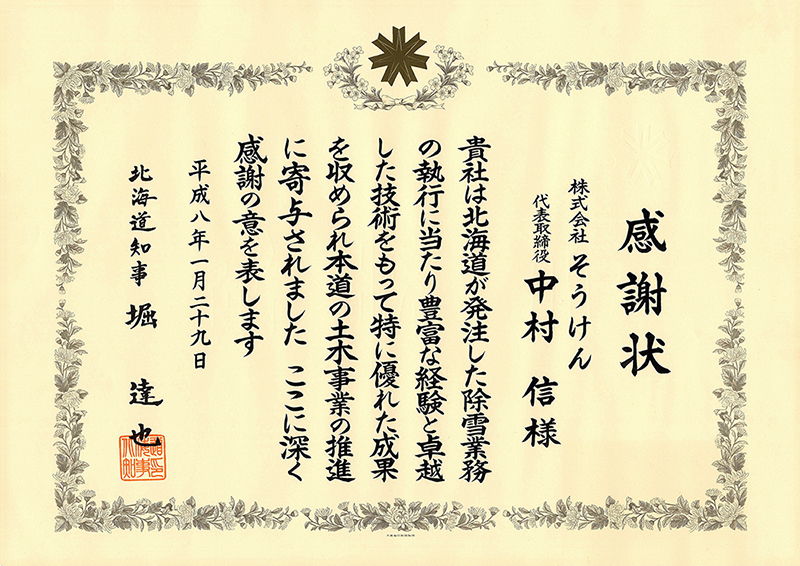 感謝状
株式会社 そうけん
代表取締役 中村 信様
貴社は北海道が発注した除雪業務
の執行に当たり豊富な経験と卓越
した技術をもって特に優れた成果
を収められ本道の土木事業の推進
に寄与されました ここに深く
感謝の意を表します
平成八年一月二十九日
北海道知事 堀 達也